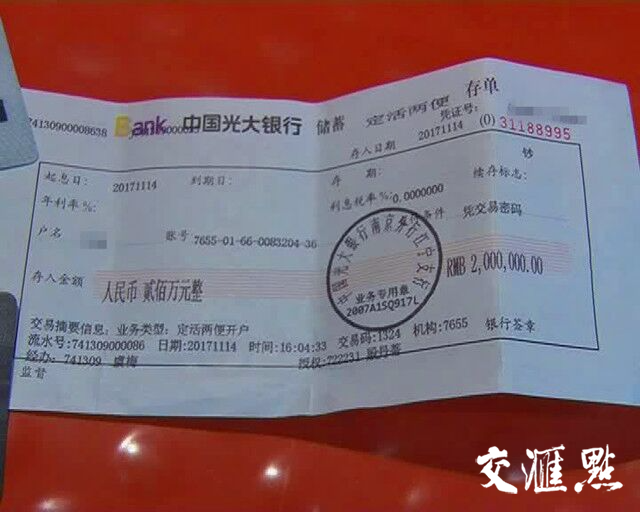 741309000008638 Bank 中国光大银行 储蓄 定活两便 存单
存入日期 20171114 凭证号: (0) 31188995
起息日: 20171114 到期日: 存 期: 钞
年利率%: 利息税率% 0.0000000 续存标志:
户名 账号 7655-01-66-0083204-36 条件 凭交易密码
存入金额 人民币 贰佰万元整 RMB 2,000,000.00
中国光大银行南京分行江宁支行
业务专用章
2007A1SQ917L
交易摘要信息: 业务类型: 定活两便开户
流水号:741309000086 日期:20171114 时间:16:04:33 交易码:1324 机构:7655 银行签章
经办: 741309 虞梅 授权:722231 殷丹蓄
监督
交汇點